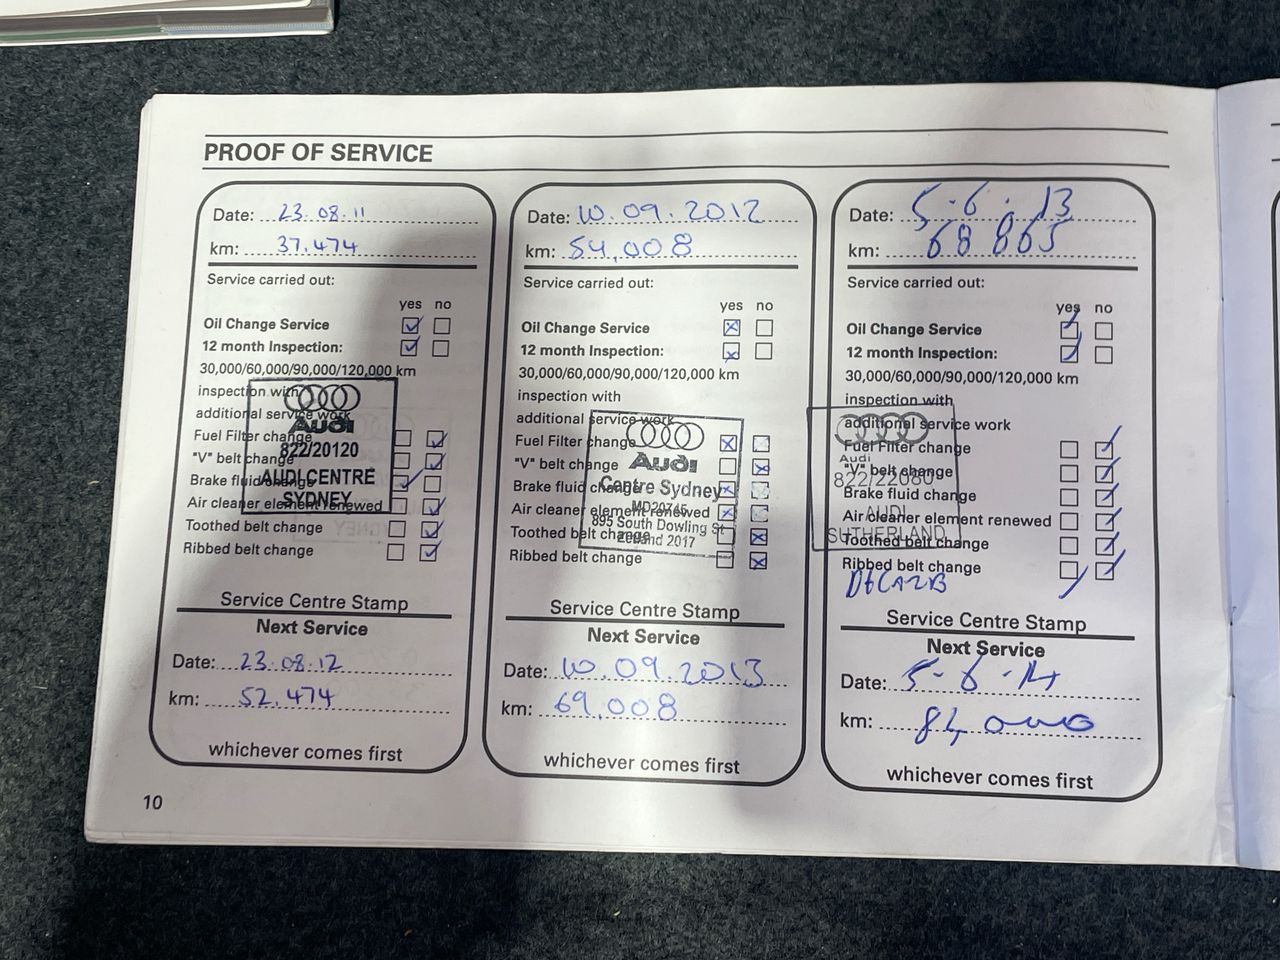 PROOF OF SERVICE
Date: 23.08.11
km: 37.474
Service carried out:
yes no
Oil Change Service
12 month Inspection:
30,000/60,000/90,000/120,000 km
inspection with
additional service work
Fuel Filter change
"V" belt change
Brake fluid change
Air cleaner element renewed
Toothed belt change
Ribbed belt change
Audi
822/20120
AUDI CENTRE
SYDNEY
Service Centre Stamp
Next Service
Date: 23.08.12
km: 52.474
whichever comes first
Date: 10.09.2012
km: 54,008
Service carried out:
yes no
Oil Change Service
12 month Inspection:
30,000/60,000/90,000/120,000 km
inspection with
additional service work
Fuel Filter change
"V" belt change
Brake fluid change
Air cleaner element renewed
Toothed belt change
Ribbed belt change
Audi
Centre Sydney
895 South Dowling St
Zetland 2017
Service Centre Stamp
Next Service
Date: 10.09.2013
km: 69,008
whichever comes first
Date: 5-6-13
km: 68 865
Service carried out:
yes no
Oil Change Service
12 month Inspection:
30,000/60,000/90,000/120,000 km
inspection with
additional service work
Fuel Filter change
"V" belt change
Brake fluid change
Air cleaner element renewed
Toothed belt change
Ribbed belt change
Audi
822/22080
AUDI
SUTHERLAND
Service Centre Stamp
Next Service
Date: 5-6-14
km: 84,000
whichever comes first
10